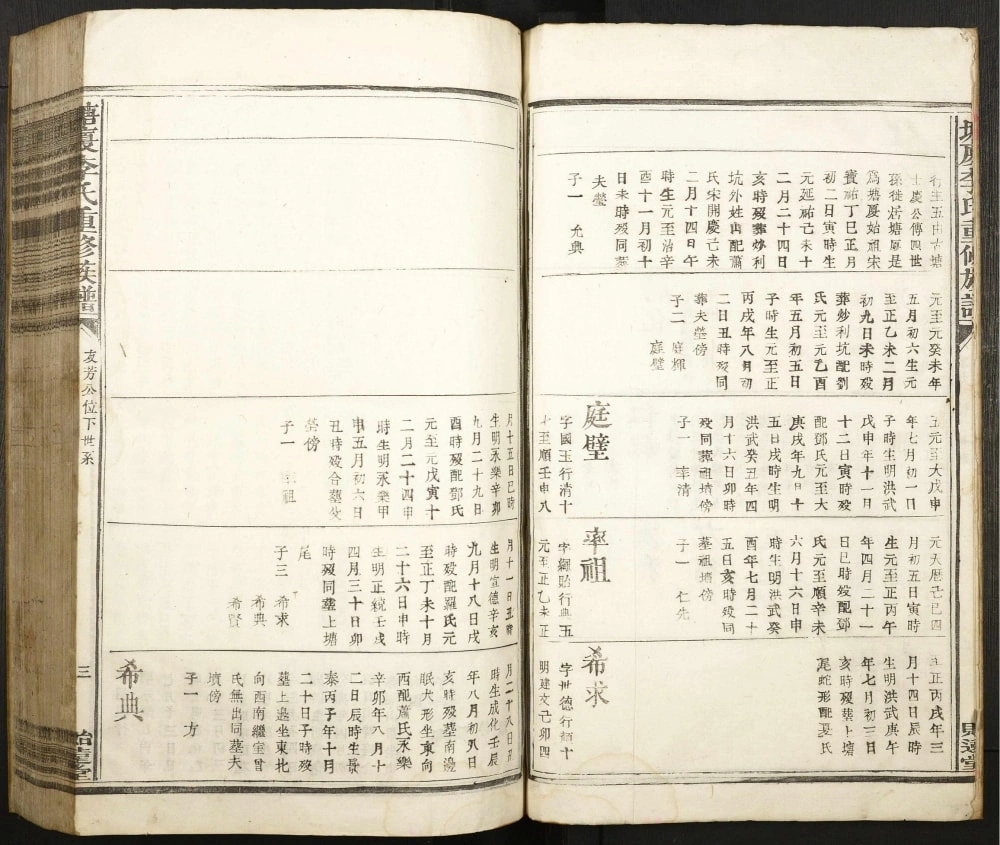 行生五由古塘
士慶公傳四世
孫徙居塘厦是
爲塘厦始祖宋
寶祐丁巳正月
初二日寅時生
元延祐己未十
二月二十四日
亥時殁葬妙利
坑外姓山配蕭
氏宋開慶己未
二月十四日午
時生元至治辛
酉十一月初十
日未時殁同葬
夫塋
子一 允典
元至元癸未年
五月初六生元
至正乙未二月
初九日未時殁
葬妙利坑配劉
氏元至元乙酉
年五月初五日
子時生元至正
丙戌年八月初
二日丑時殁同
葬夫塋傍
子二 庭輝
庭璧
五元至大戊申
年七月初一日
子時生明洪武
戊申年十一月
十二日寅時殁
配鄧氏元至大
庚戌年九月十
五日戌時生明
洪武癸丑年四
月十六日卯時
殁同葬祖墳傍
子一 率清
庭璧
字國玉行清十
七至順壬申八
元天曆己巳四
月初五日寅時
生元至正丙午
年四月二十一
日巳時殁配鄧
氏元至順辛未
六月十六日申
時生明洪武癸
酉年七月二十
五日亥時殁同
墓祖墳傍
子一 仁先
率祖
字紹貽行典五
元至正乙未正
至正丙戌年三
月十四日辰時
生明洪武庚午
年七月初三日
亥時殁葬上塘
尾蛇形配夏氏
希求
字世德行朝十
明建文己卯四
塘厦李氏重修族譜
友芳公位下世系
三
月十五日巳時
生明永樂辛卯
九月二十九日
酉時殁配鄧氏
元至元戊寅十
二月二十四申
時生明永樂甲
申五月初六日
丑時殁合墓父
塋傍
子一 率祖
月十一日丑時
生明宣德辛亥
九月十八日戌
時殁配羅氏元
至正丁未十月
二十六日申時
生明正統壬戌
四月三十日卯
時殁同葬上塘
尾
子三 希求
希典
希賢
月二十八日丑
時生成化壬辰
年八月初八日
亥時殁墓南邊
眠犬形坐東向
西配蕭氏永樂
辛卯年八月十
二日辰時生景
泰丙子年十月
二十日子時殁
墓上邊坐東北
向西南繼室曾
氏無出同墓夫
墳傍
子一 方
希典